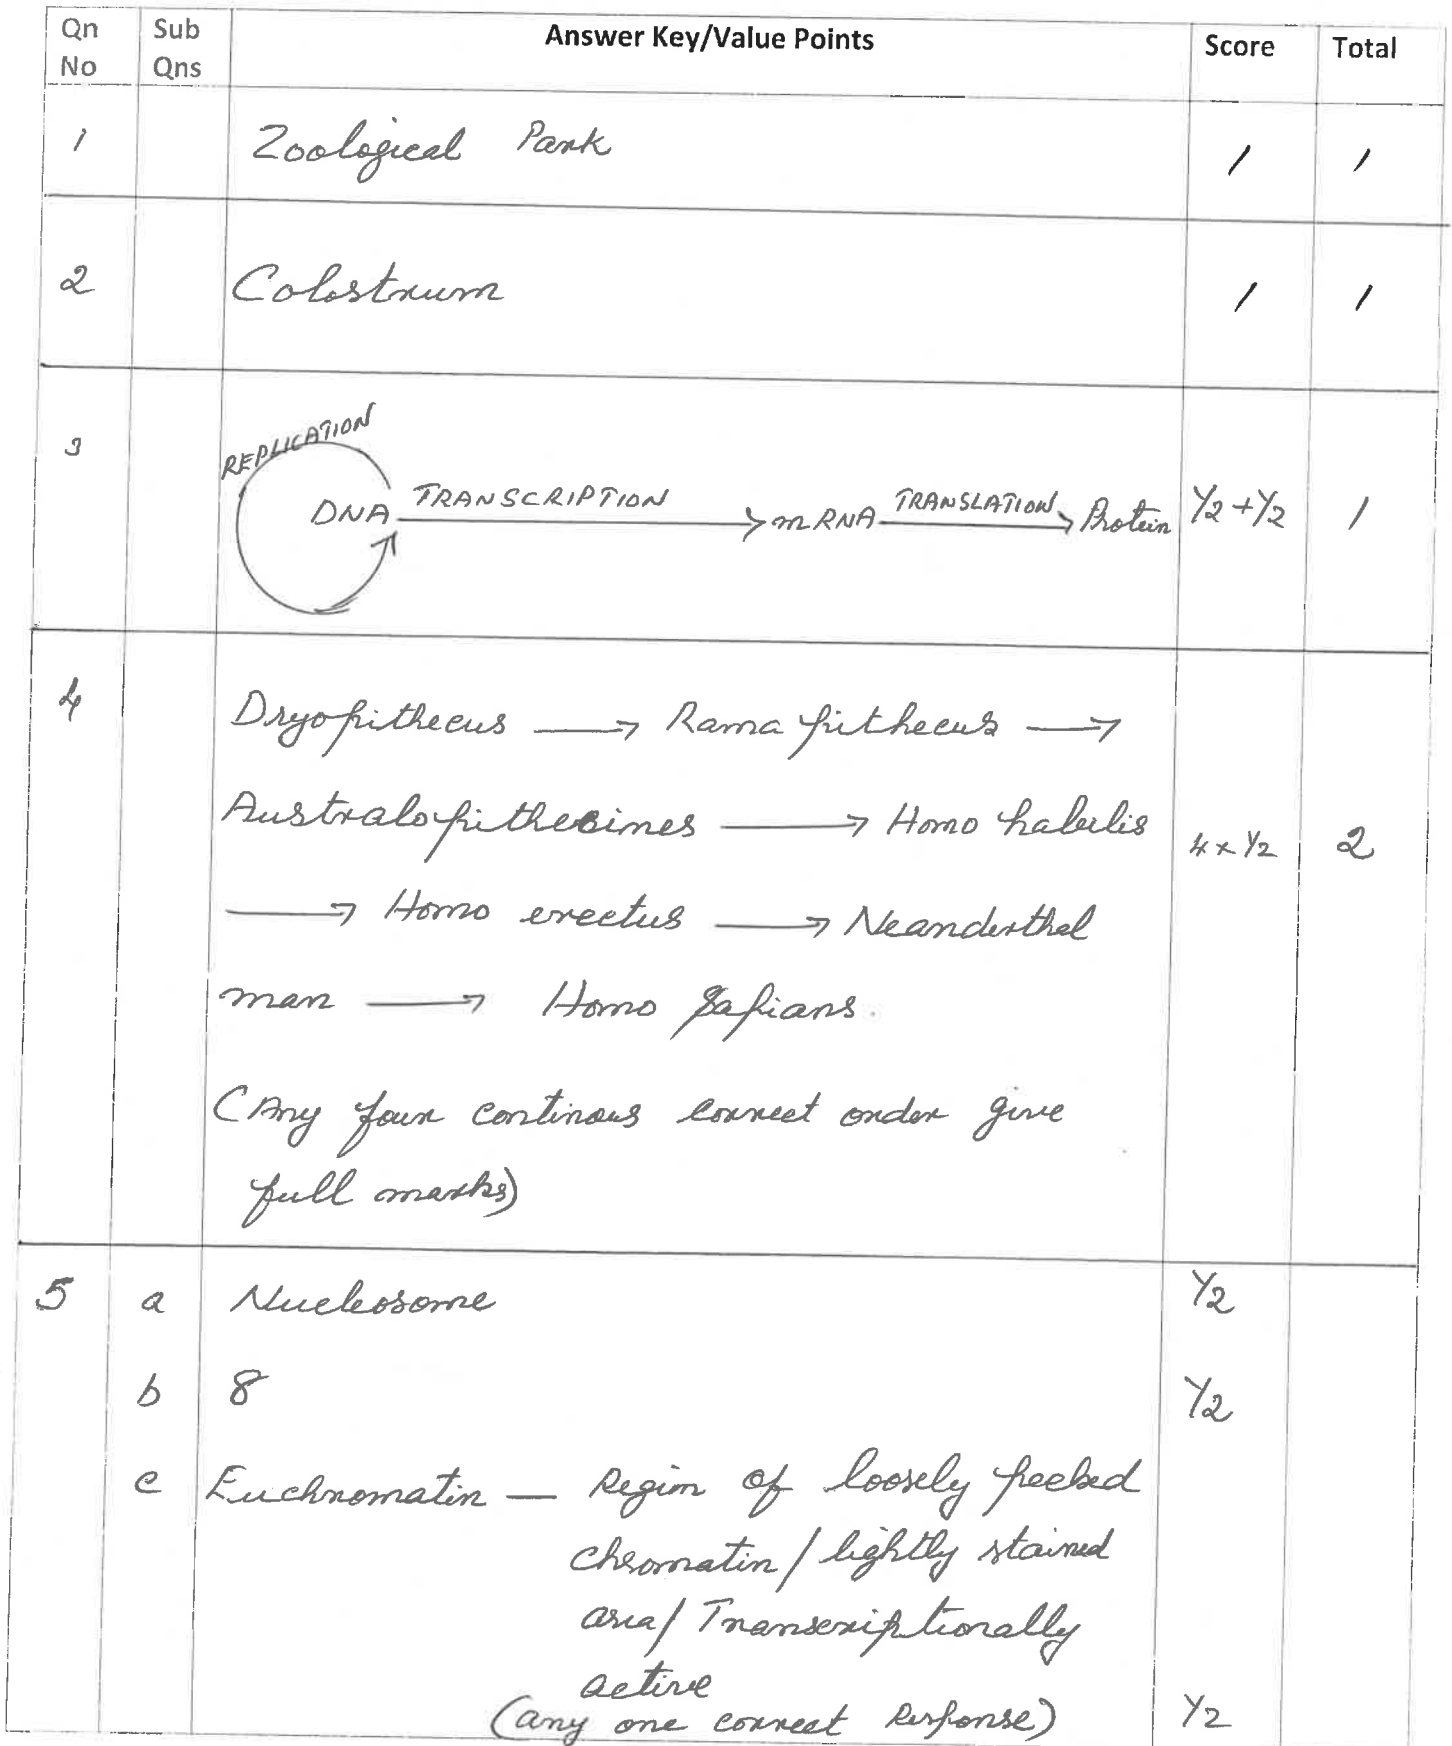 Qn No Sub Qns Answer Key/Value Points Score Total
1 Zoological Park 1 1
2 Colostrum 1 1
REPLICATION
3 DNA TRANSCRIPTION mRNA TRANSLATION Protein 1/2+1/2 1
4 Dryopithecus → Rama pithecus →
Australopithecines → Homo habilis 4 x 1/2 2
→ Homo erectus → Neanderthal
man → Homo Sapians.
(Any four continous correct order give
full marks)
5 a Nucleosome 1/2
b 8 1/2
c Euchromatin — Region of loosely packed
chromatin/lightly stained
area/Transcriptionally
active
(any one correct Response) 1/2